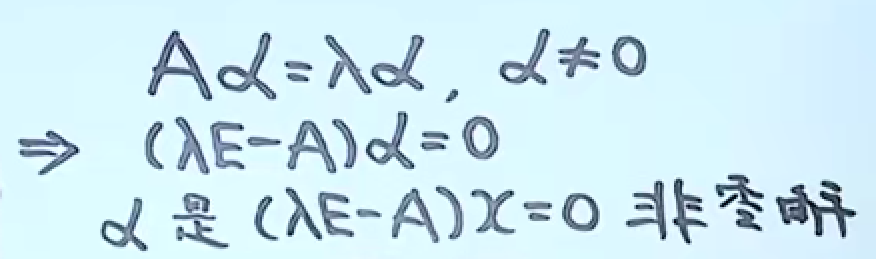 Aα=λα, α≠0
⇒ (λE-A)α=0
α是(λE-A)x=0 非零解